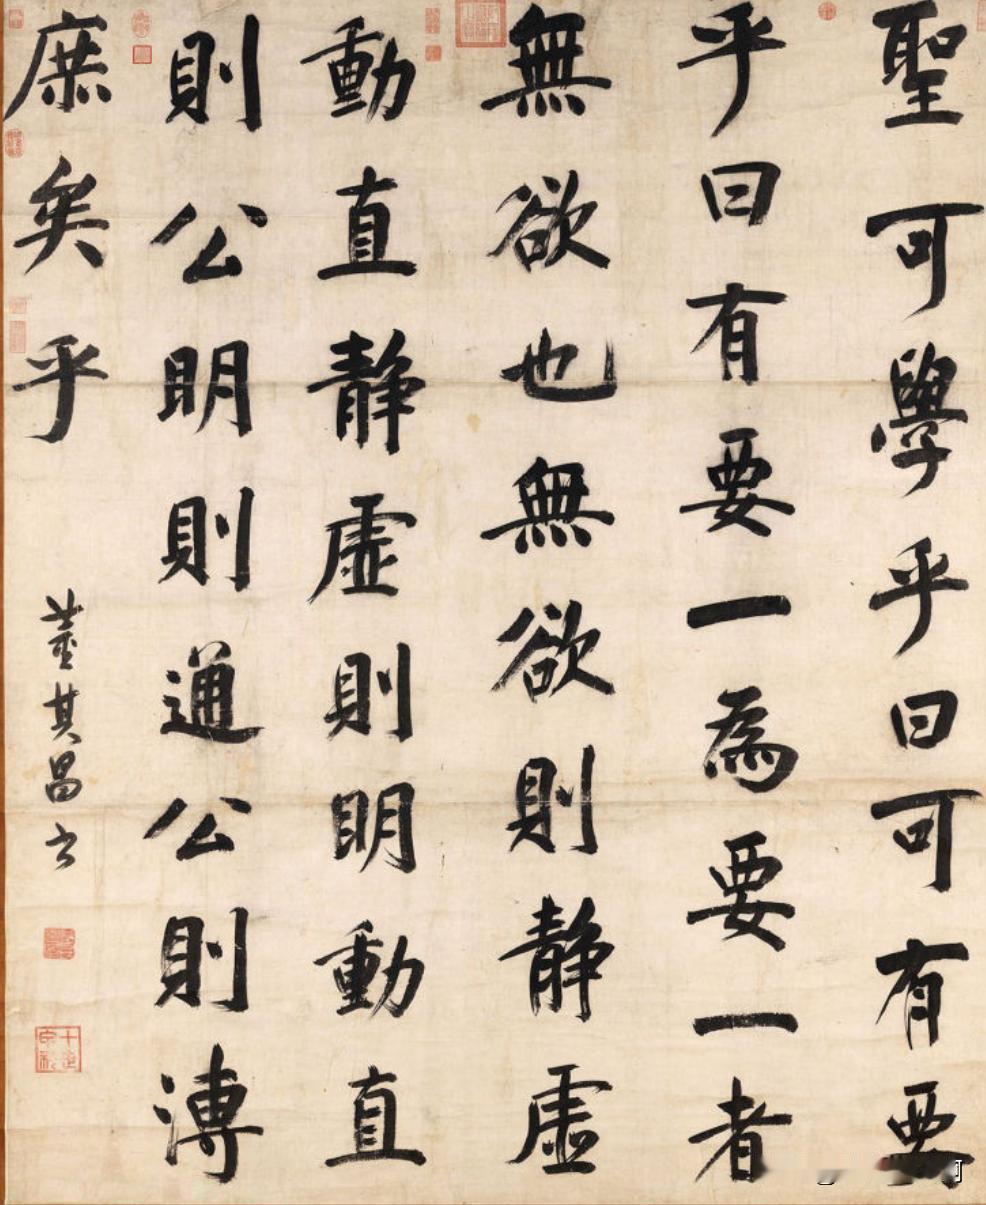 聖可學乎曰可有要
乎曰有要一為要一者
無欲也無欲則静虚
動直静虚則明動直
則公明則通公則溥
庶矣乎
董其昌書